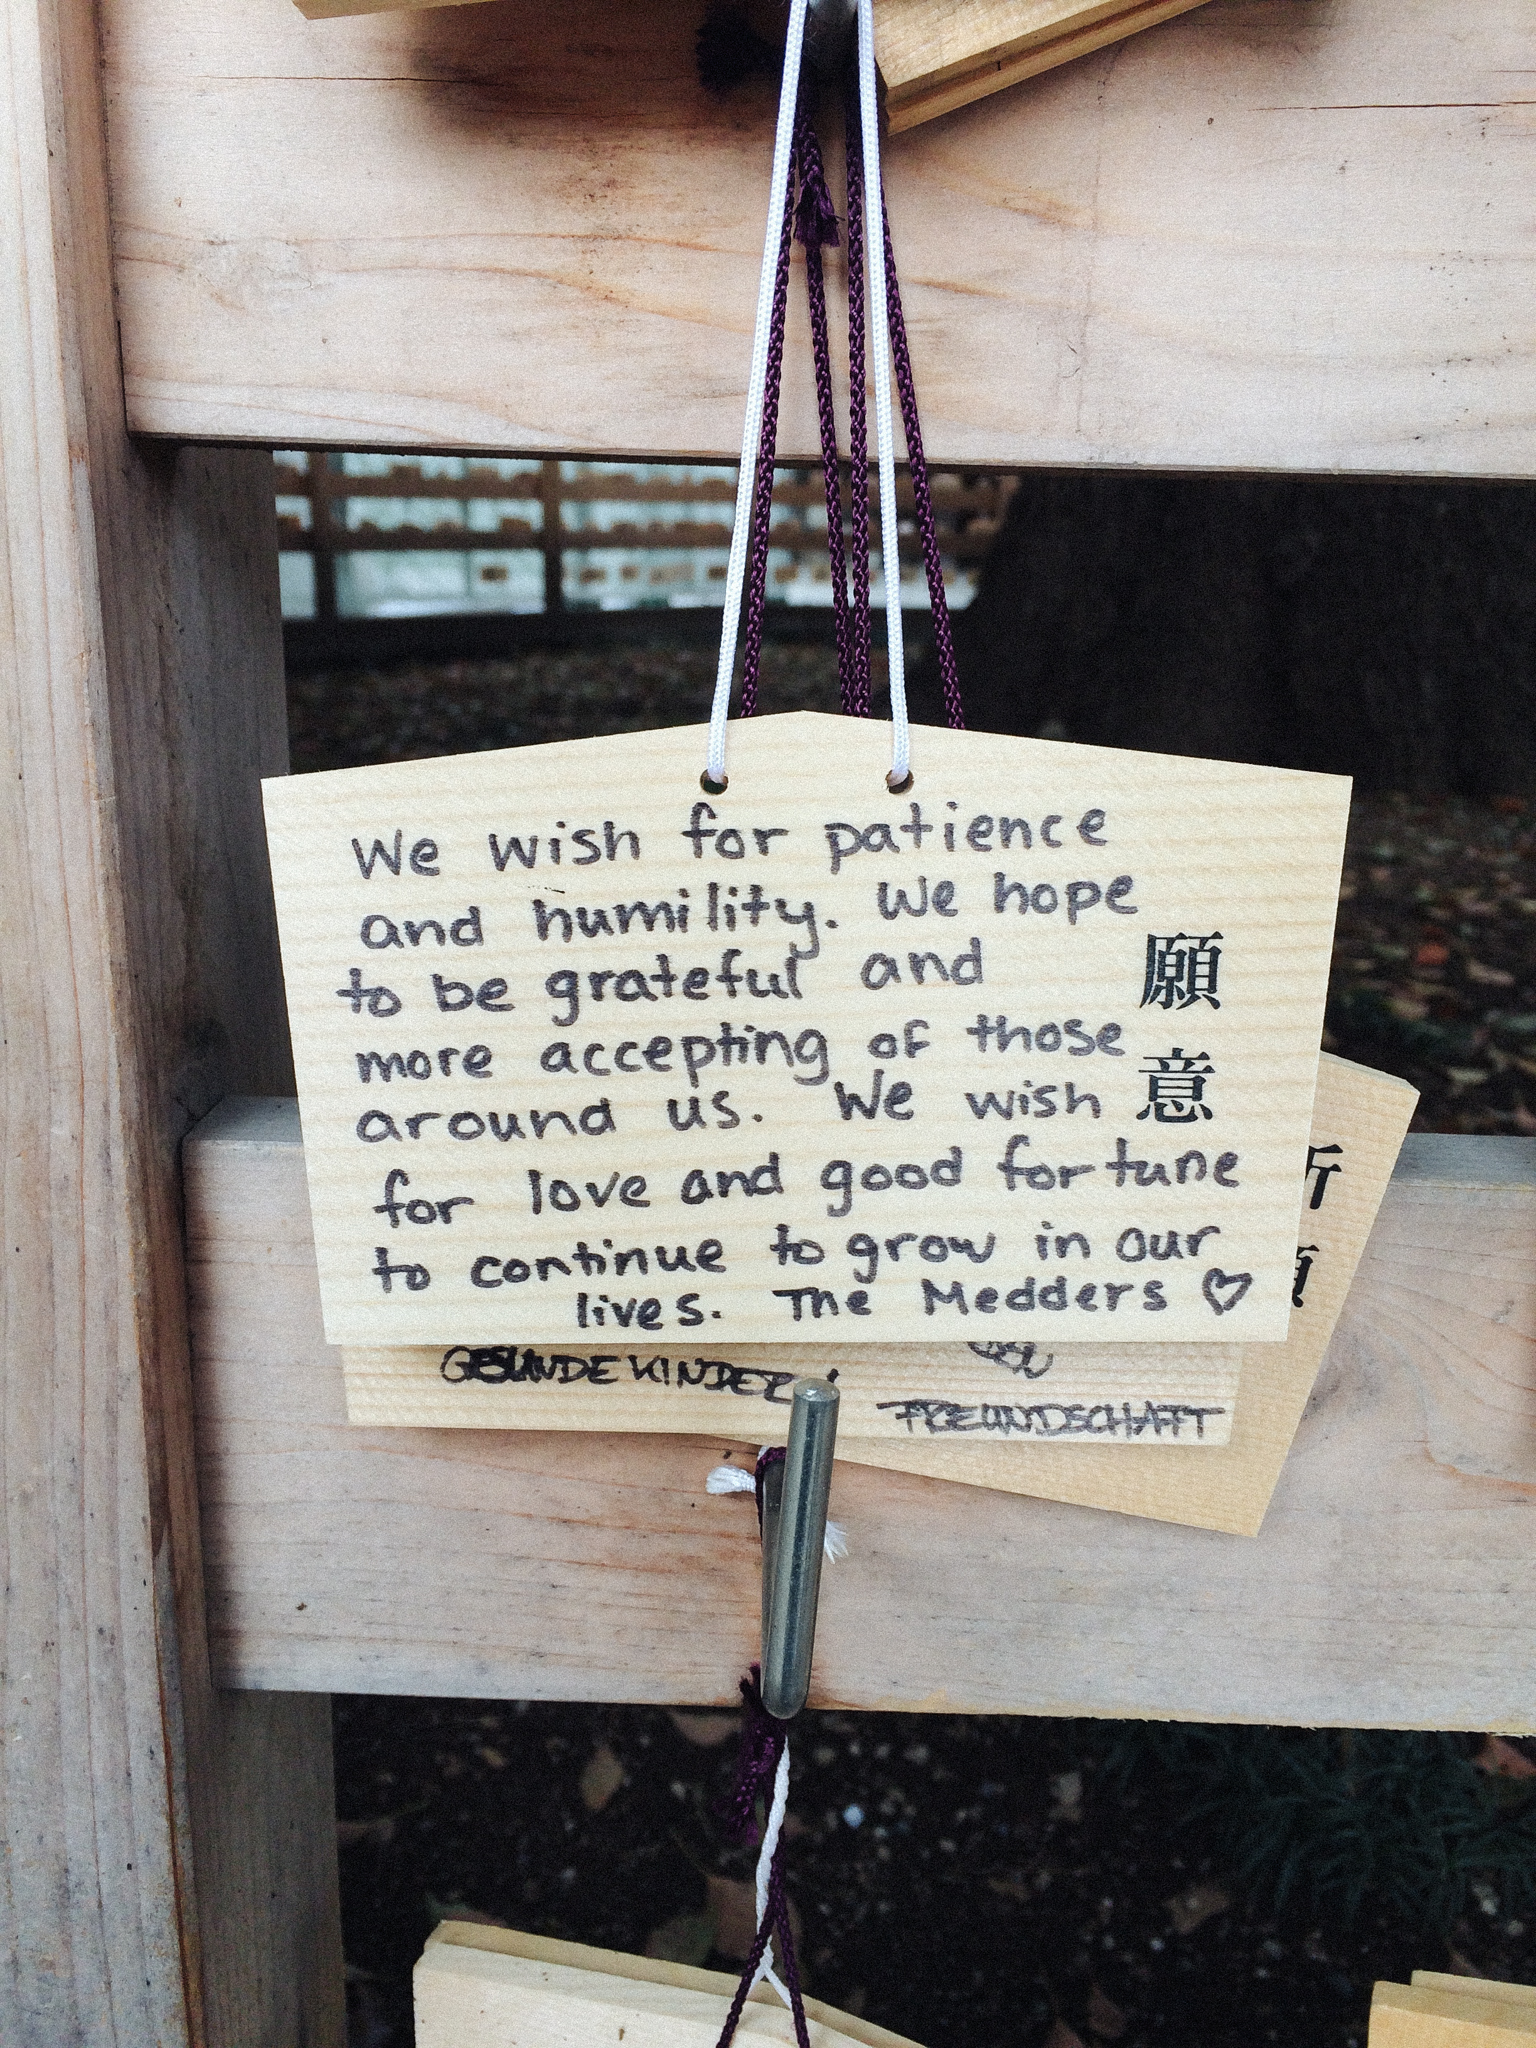 We wish for patience
and humility. We hope
to be grateful and
more accepting of those
around us. We wish
for love and good fortune
to continue to grow in our
lives. The Medders ♡
願意
GESUNDE KINDER
FREUNDSCHAFT